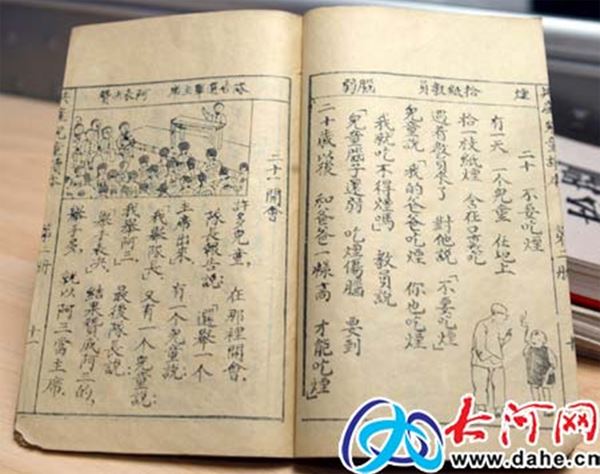 煙 拾紙教員 腦弱
二十 不要吃煙
有一天 一個兒童 在地上
拾一枝紙煙 含在口裏吃
遇着教員來了 對他說 「不要吃煙」
兒童說 「我的爸爸吃煙 你也吃煙
我就吃不得煙嗎」 教員說
「兒童腦子還弱 吃煙傷腦 要到
二十歲以後 和爸爸一樣高 才能吃煙」
第一册
二十一 開會
許多兒童, 在那裡開會.
隊長報告說: 「選舉一個
主席出來」 有一個兒童說:
「我舉隊長」 又有一個兒童說:
「我舉阿三」 最後隊長說:
「舉手表決」 結果贊成阿三的,
舉手多, 就以阿三當主席.
第一册
十一
大河网
www.dahe.cn